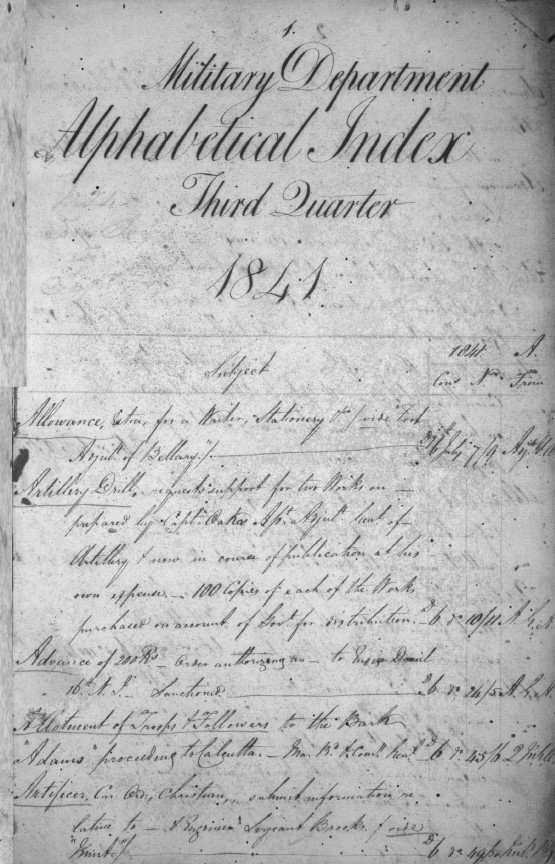 1.
Military Department
Alphabetical Index
Third Quarter
1841
1841 A.
Subject Cons Nos From
Allowance, Extra, for a Writer, Stationery &c (vide Fort
Adjutt. of Bellary") 6 July 7/9
Artillery Drill, requests support for two Works on
prepared by Capt. Oakes Asst. Adjutt. Genl. of
Artillery & now in course of publication at his
own expense. — 100 Copies of each of the Works
purchased on account of Govt. for distribution. 6 do 10/11 A. G. A
Advance of 200 Rs — Order authorizing an — to Ensign
16th N. I. Sanctioned 6 do 24/5 A. G. A
Allotment of Troops & Followers to the Bark
"Adams" proceeding to Calcutta. 6 do 45/6
Artificer, Car. Ord., Christian, submit information re-
lative to — & Engineer Sergeant Brooks. (vide
"Mint") 6 do